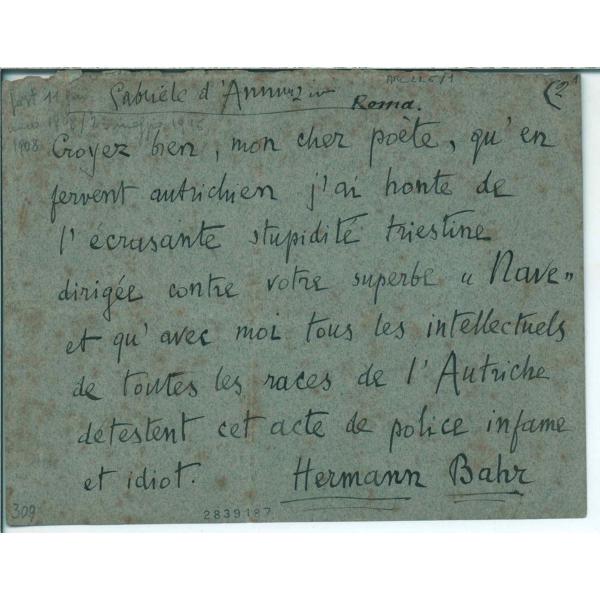 ARC.22.6/1
(2
Gabriele d'Annunzio
Roma.
1908
Croyez bien, mon cher poète, qu'en
fervent autrichien j'ai honte de
l'écrasante stupidité triestine
dirigée contre votre superbe « Nave »
et qu'avec moi tous les intellectuels
de toutes les races de l'Autriche
détestent cet acte de police infame
et idiot. Hermann Bahr
309
2839187